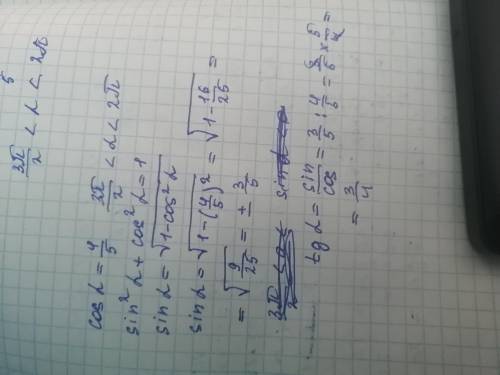 5
3π/2 < α < 2π
cos α = 4/5 3π/2 < α < 2π
sin² α + cos² α = 1
sin α = √(1 - cos² α)
sin α = √(1 - (4/5)²) = √(1 - 16/25) =
= √(9/25) = ± 3/5
tg α = sin/cos = 3/5 : 4/5 = 3/5 × 5/4 =
= 3/4